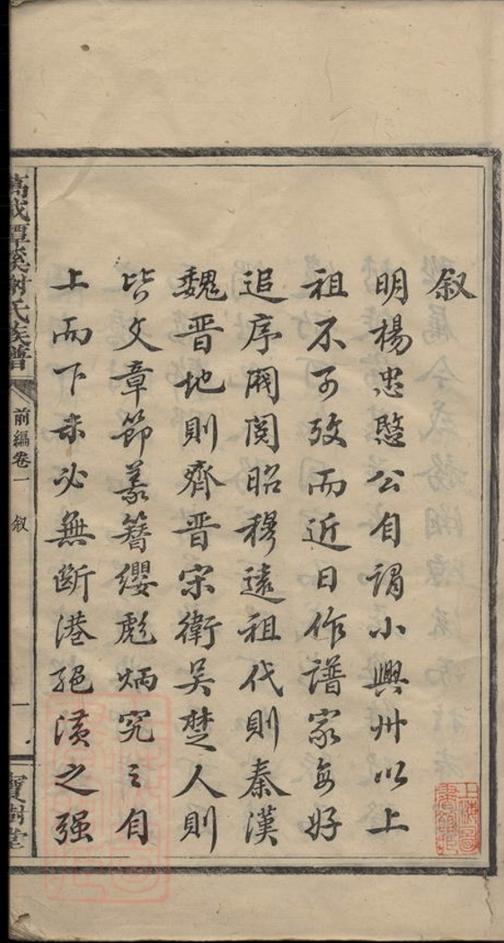 叙
明楊忠愍公自謂小興州以上
祖不可攷而近日作譜家每好
追序閥閱昭穆遠祖代則秦漢
魏晉地則齊晉宋衛吳楚人則
皆文章節義簪纓彪炳究之自
上而下未必無斷港絕潢之强
萬載潭溪謝氏族譜
前編卷一 叙
一
寶樹堂